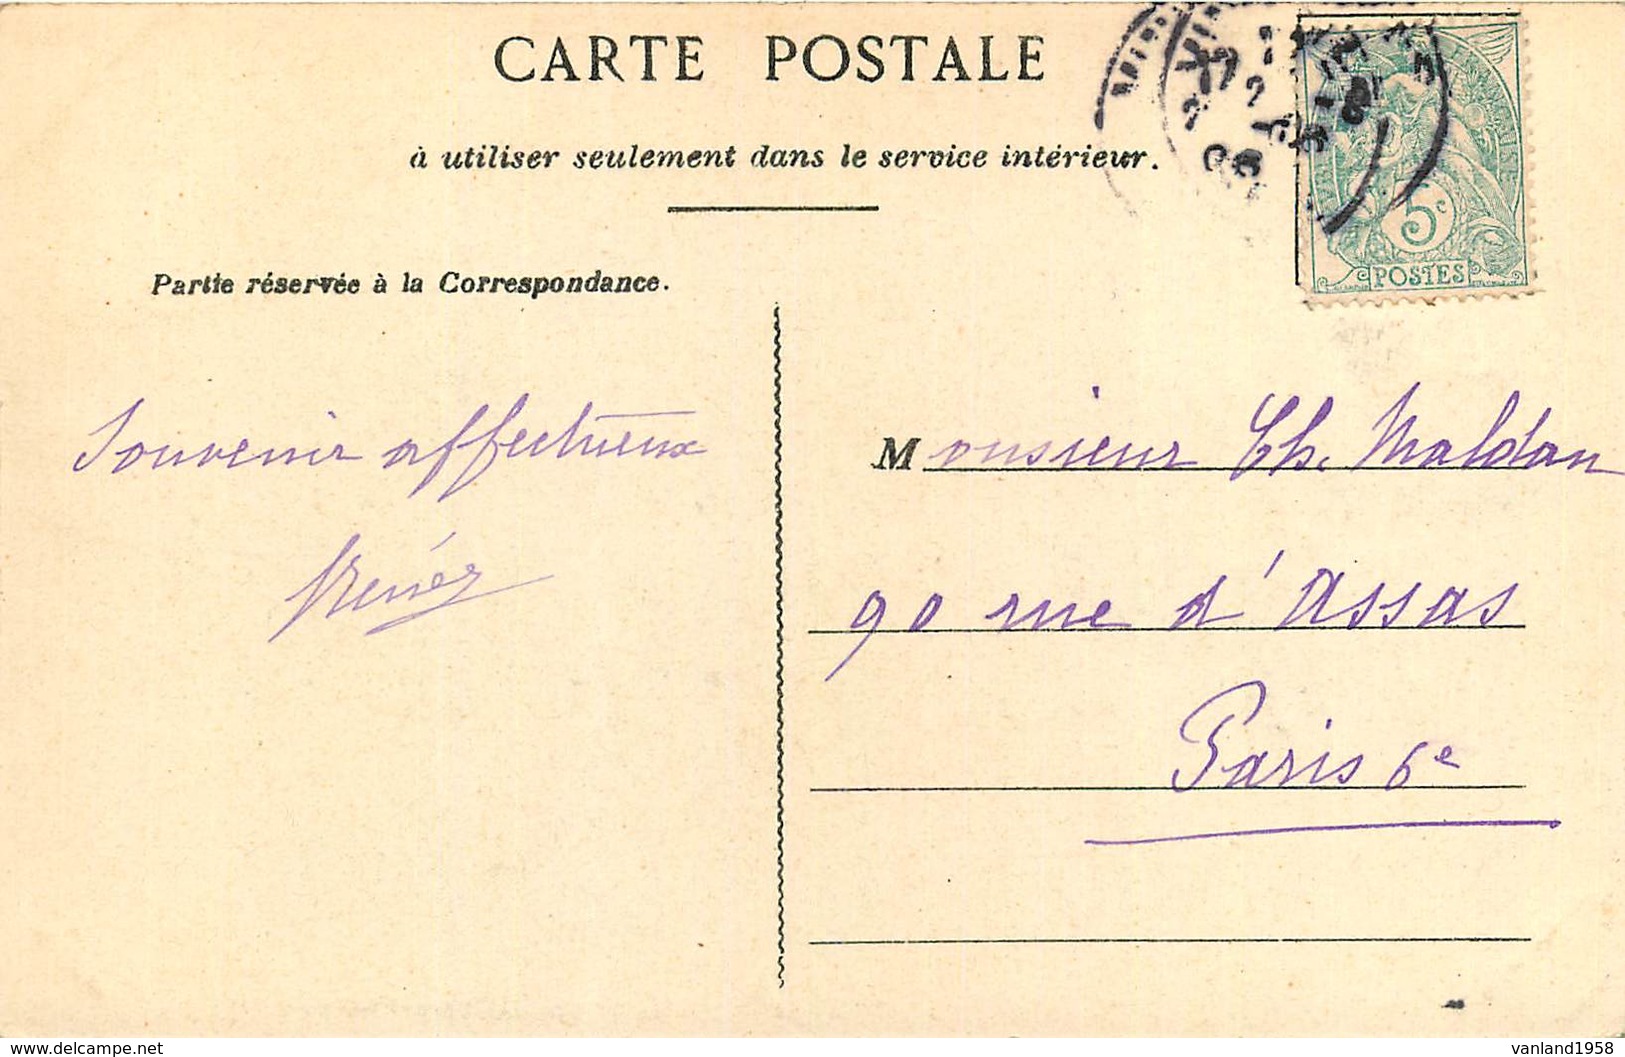 CARTE POSTALE
à utiliser seulement dans le service intérieur.
5c
POSTES
Partie réservée à la Correspondance.
Souvenir affectueux
Monsieur Ch. Maldan
90 rue d'Assas
Paris 6e
vanland1958